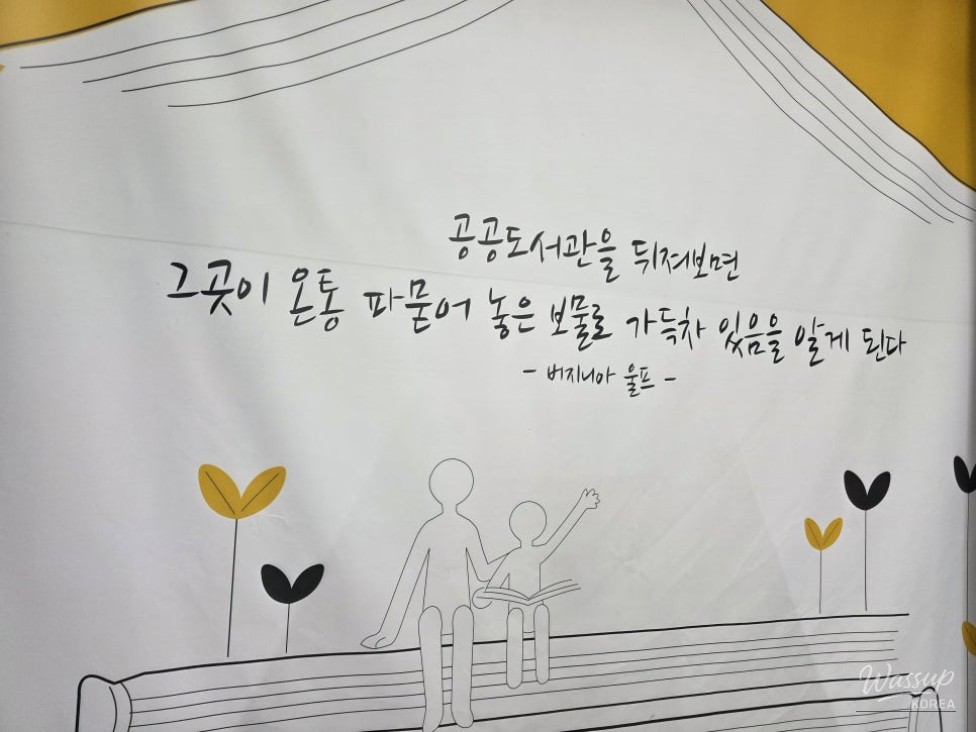 공공도서관을 뒤져보면
그곳이 온통 파묻어 놓은 보물로 가득차 있음을 알게 된다
- 버지니아 울프 -
Wassup
KOREA